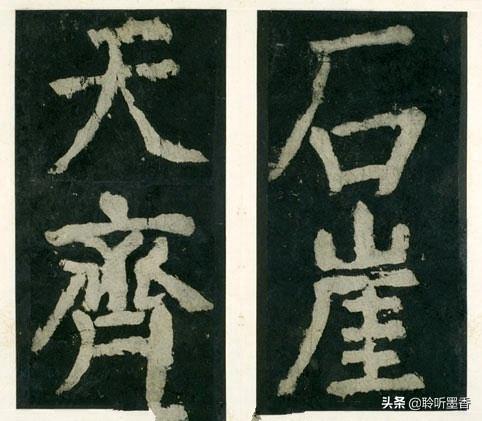 石崖
天齊
头条 @聆听墨香